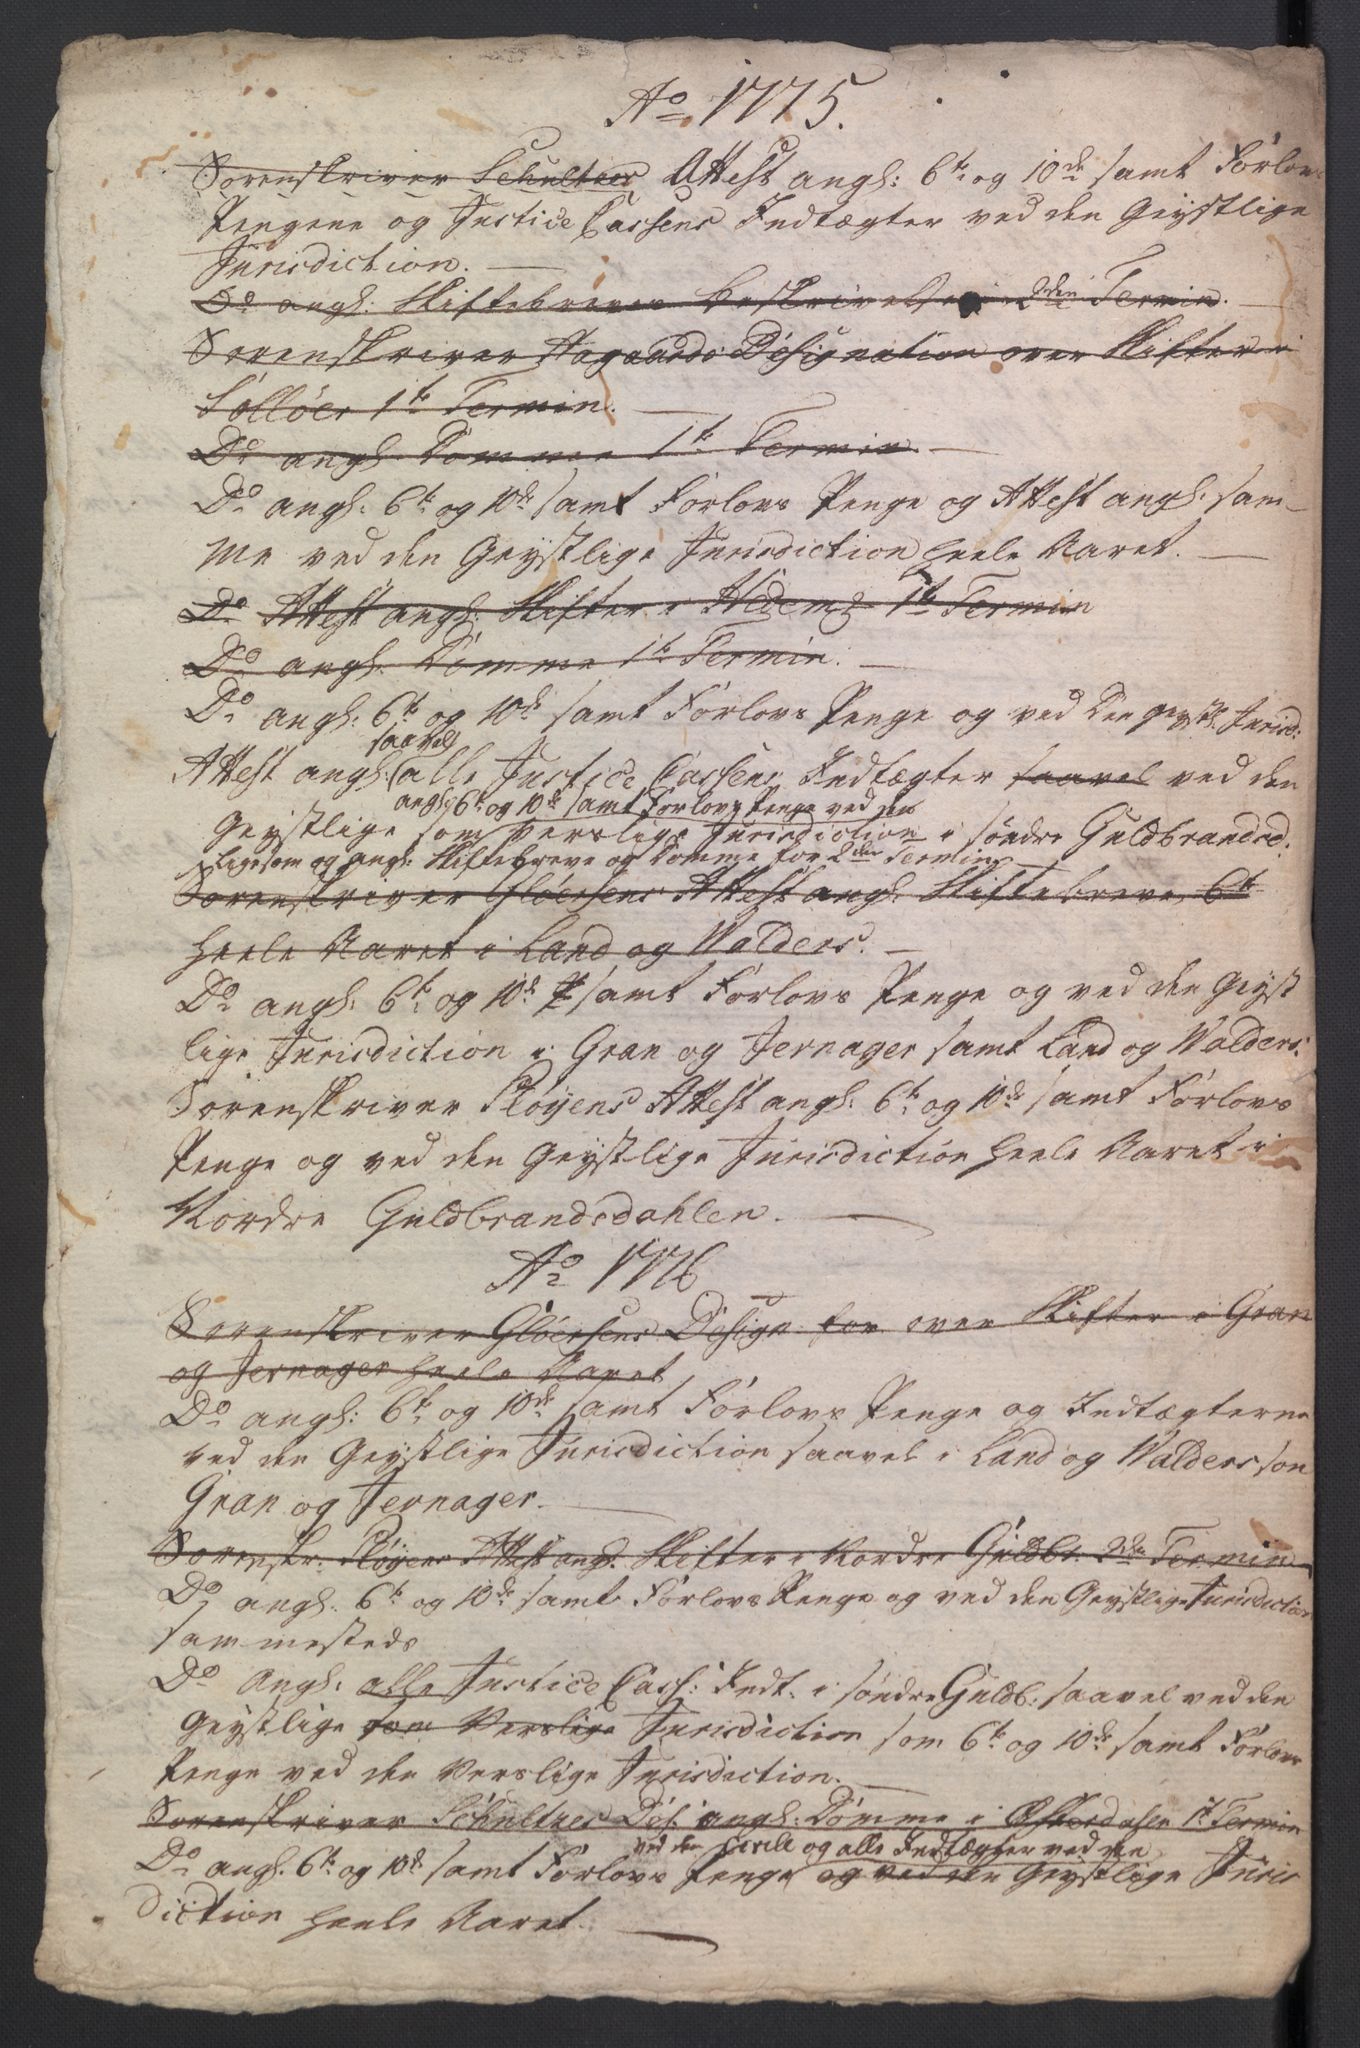 Ao 1775.
Sorenskriver Schultzes Attest angl: 6te og 10de samt Forlovs
Pengene og Justice Cassens Indtægter ved den Geystlige
Jurisdiction.
Do angl: Skiftebreves beskrivelse i 2den Termin.
Sorenskriver Aagaards Designation over Skifter i
Solløer 1te Termin.
Do angl. Domme 1te Termin.
Do angl: 6te og 10de samt Forlovs Penge og Attest angl: sam-
me ved den Geystlige Jurisdiction heele Aaret.
Do Attest angl: Skifter i 1te Termin
Do angl. Domme 1te Termin.
Do angl: 6te og 10de samt Forlovs Penge og ved den geystl: Jurisd:
saavel
Attest angl: alle Justice Cassens Indtægter saavel ved den
angl: 6te og 10de samt Forlovs Penge ved den
Geystlige som Verslige Jurisdiction i søndre Guldbrandsd.
Ligesom og angl: Skiftebreve og Domme for 2den Termin
Sorenskriver Gløersens Attest angl: Skiftebreve, 6te
heele Aaret i Land og Walders.
Do angl: 6te og 10de samt Forlovs Penge og ved den Geyst
lige Jurisdiction i Gran og Jernager samt Land og Walders.
Sorenskriver Pløyens Attest angl: 6te og 10de samt Forlovs
Penge og ved den Geystlige Jurisdiction heele Aaret i
Nordre Guldbrandsdahlen.
Ao 1776
Sorenskriver Gløersens Design: for over Skifter i Gran
og Jernager heele Aaret
Do angl: 6te og 10de samt Forlovs Penge og Indtægterne
ved den Geystlige Jurisdiction saavel i Land og Walders som
Gran og Jernager.
Sorenskr: Pløyens Attest angl. Skifter i Nordre Guldbr. 2den Termin
Do angl. 6te og 10de samt Forlovs Penge og ved den Geystlige Jurisdiction
sammesteds
Do Angl: alle Justice Cass: Indt. i søndre Guldb: saavel ved den
Geystlige som Verslige Jurisdiction som 6te og 10de samt Forlovs
Penge ved den Verslige Jurisdiction.
Sorenskriver Schultzes Des: angl: Domme i Østerdalen 1te Termin
ved den Civile og alle Indtægter ved den
Do angl. 6te og 10de samt Forlovs Penge og ved den Geystlige Juris
diction heele Aaret.